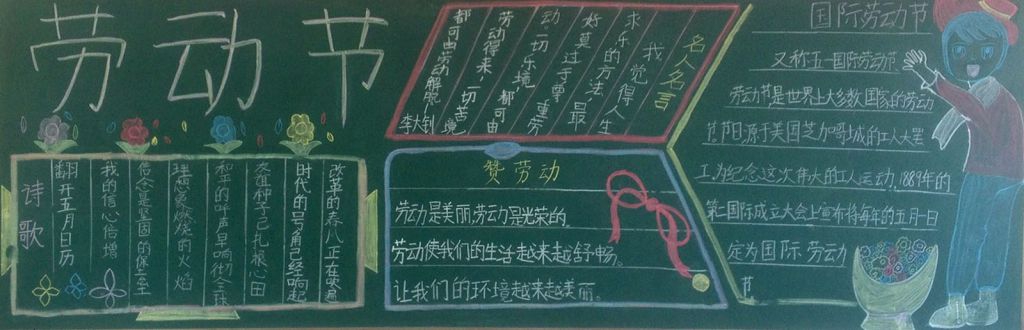 劳动节
诗歌
翻开五月日历
我的信心倍增
信念是坚固的堡垒
理想是燃烧的火焰
和平的呼声早响彻全球
友谊种子已扎根心田
时代的号角已经响起
改革的春人正在吹遍
名人名言
我觉得人生
求乐的方法，最
好莫过于尊重劳
动。一切乐境，
劳动得来，一切苦境，
都可由劳动解脱
李大钊
赞劳动
劳动是美丽，劳动是光荣的。
劳动使我们的生活越来越舒畅。
让我们的环境越来越美丽。
国际劳动节
又称五一国际劳动节
劳动节是世界上大多数国家的劳动
节。节日源于美国芝加哥城的工人大罢
工，为纪念这次伟大的工人运动，1889年的
第二国际成立大会上宣布将每年的五月一日
定为国际劳动
节